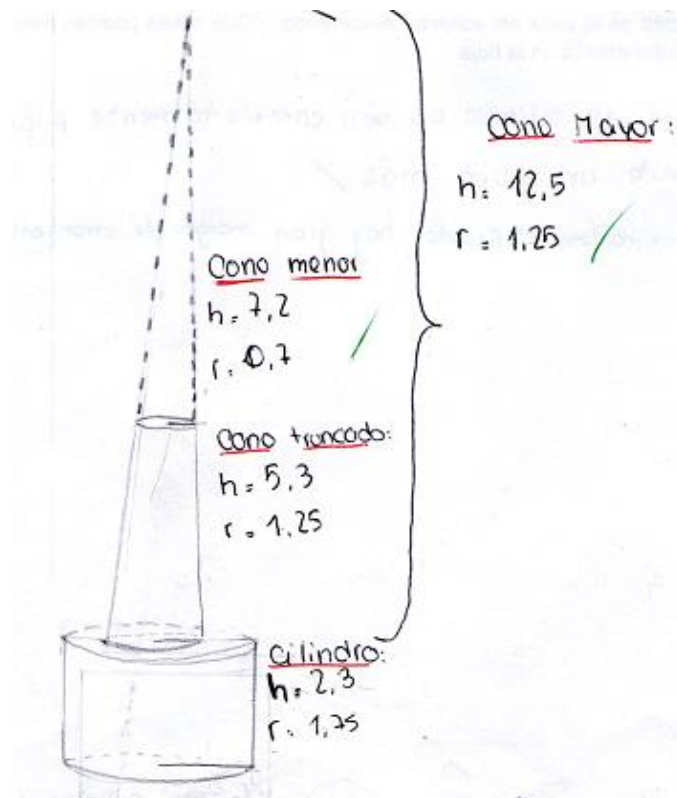 Cono Mayor:
h= 12,5
r= 1,25
Cono menor
h= 7,2
r= 0,7
Cono truncado:
h= 5,3
r= 1,25
Cilindro:
h= 2,3
r= 1,75